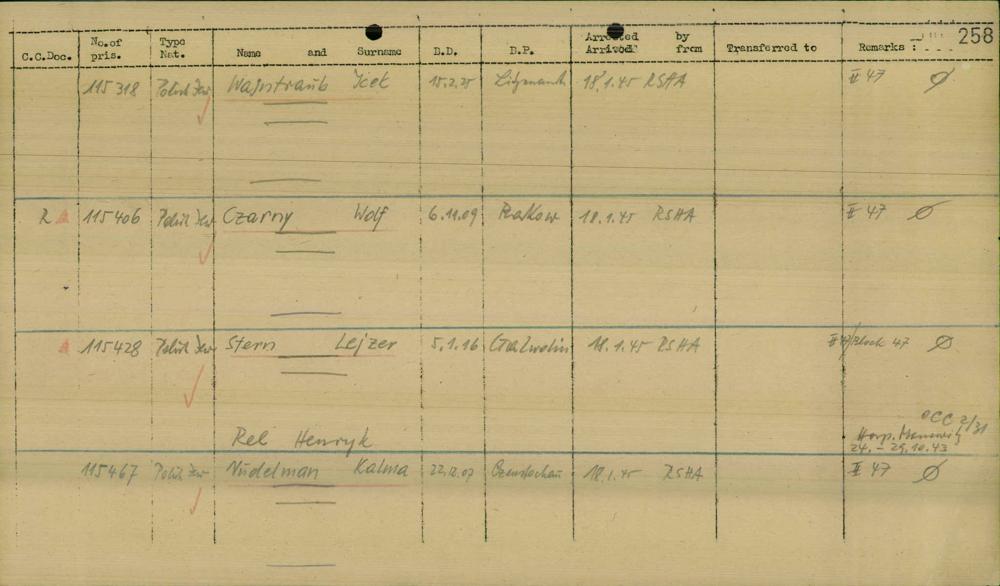 258
C.C.Doc. No.of pris. Type Nat. Name and Surname B.D. B.P. Arrested Arrived by from Transferred to Remarks :
115318 Polish Jew Wajnstraub Icek 15.2.25 18.1.45 RSHA II 47 Ø
R 115406 Polish Jew Czarny Wolf 6.11.09 Krakow 18.1.45 RSHA II 47 Ø
115428 Polish Jew Stern Lejzer 5.1.16 18.1.45 RSHA Block 47 Ø
OCC 2/31
Rel Henryk Hosp. Monowitz
24. - 29.10.43
115467 Polish Jew Nudelman Kalma 22.12.07 Czenstochau 18.1.45 RSHA II 47 Ø